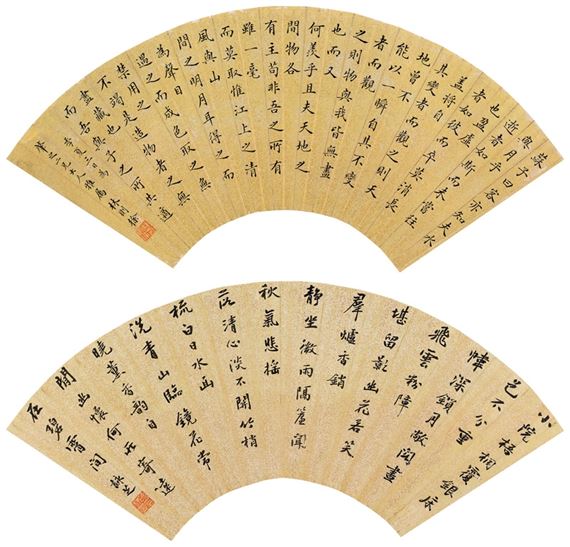 蘇子曰客亦知夫水
與月乎
逝者如斯而未嘗往
也盈虛
者如彼而卒莫消長
蓋將自
其變者而觀之則天
地曾不
能以一瞬自其不變
者而觀
之則物與我皆無盡
也而又
何羨乎且夫天地之
間物各
有主苟非吾之所有
雖一毫
而莫取惟江上之清
風與山
間之明月耳得之而
為聲目
遇之而成色取之無
禁用之
不竭是造物者之無
盡藏也
而吾與子之所共適
季夏三日為
二兄大人雅屬 林則徐
小院梧桐覆銀床
色不分重
幃深鎖月敞閑畫
飛雲粉障
堪留影幽花若笑
群爐香銷
靜坐微雨隔簾聞
秋氣悲
清心淡不聞竹梢
梳白日水曲
洗青山臨鏡花常
曉薰香韵自
閒幽懷何處寄遠
在碧霄間